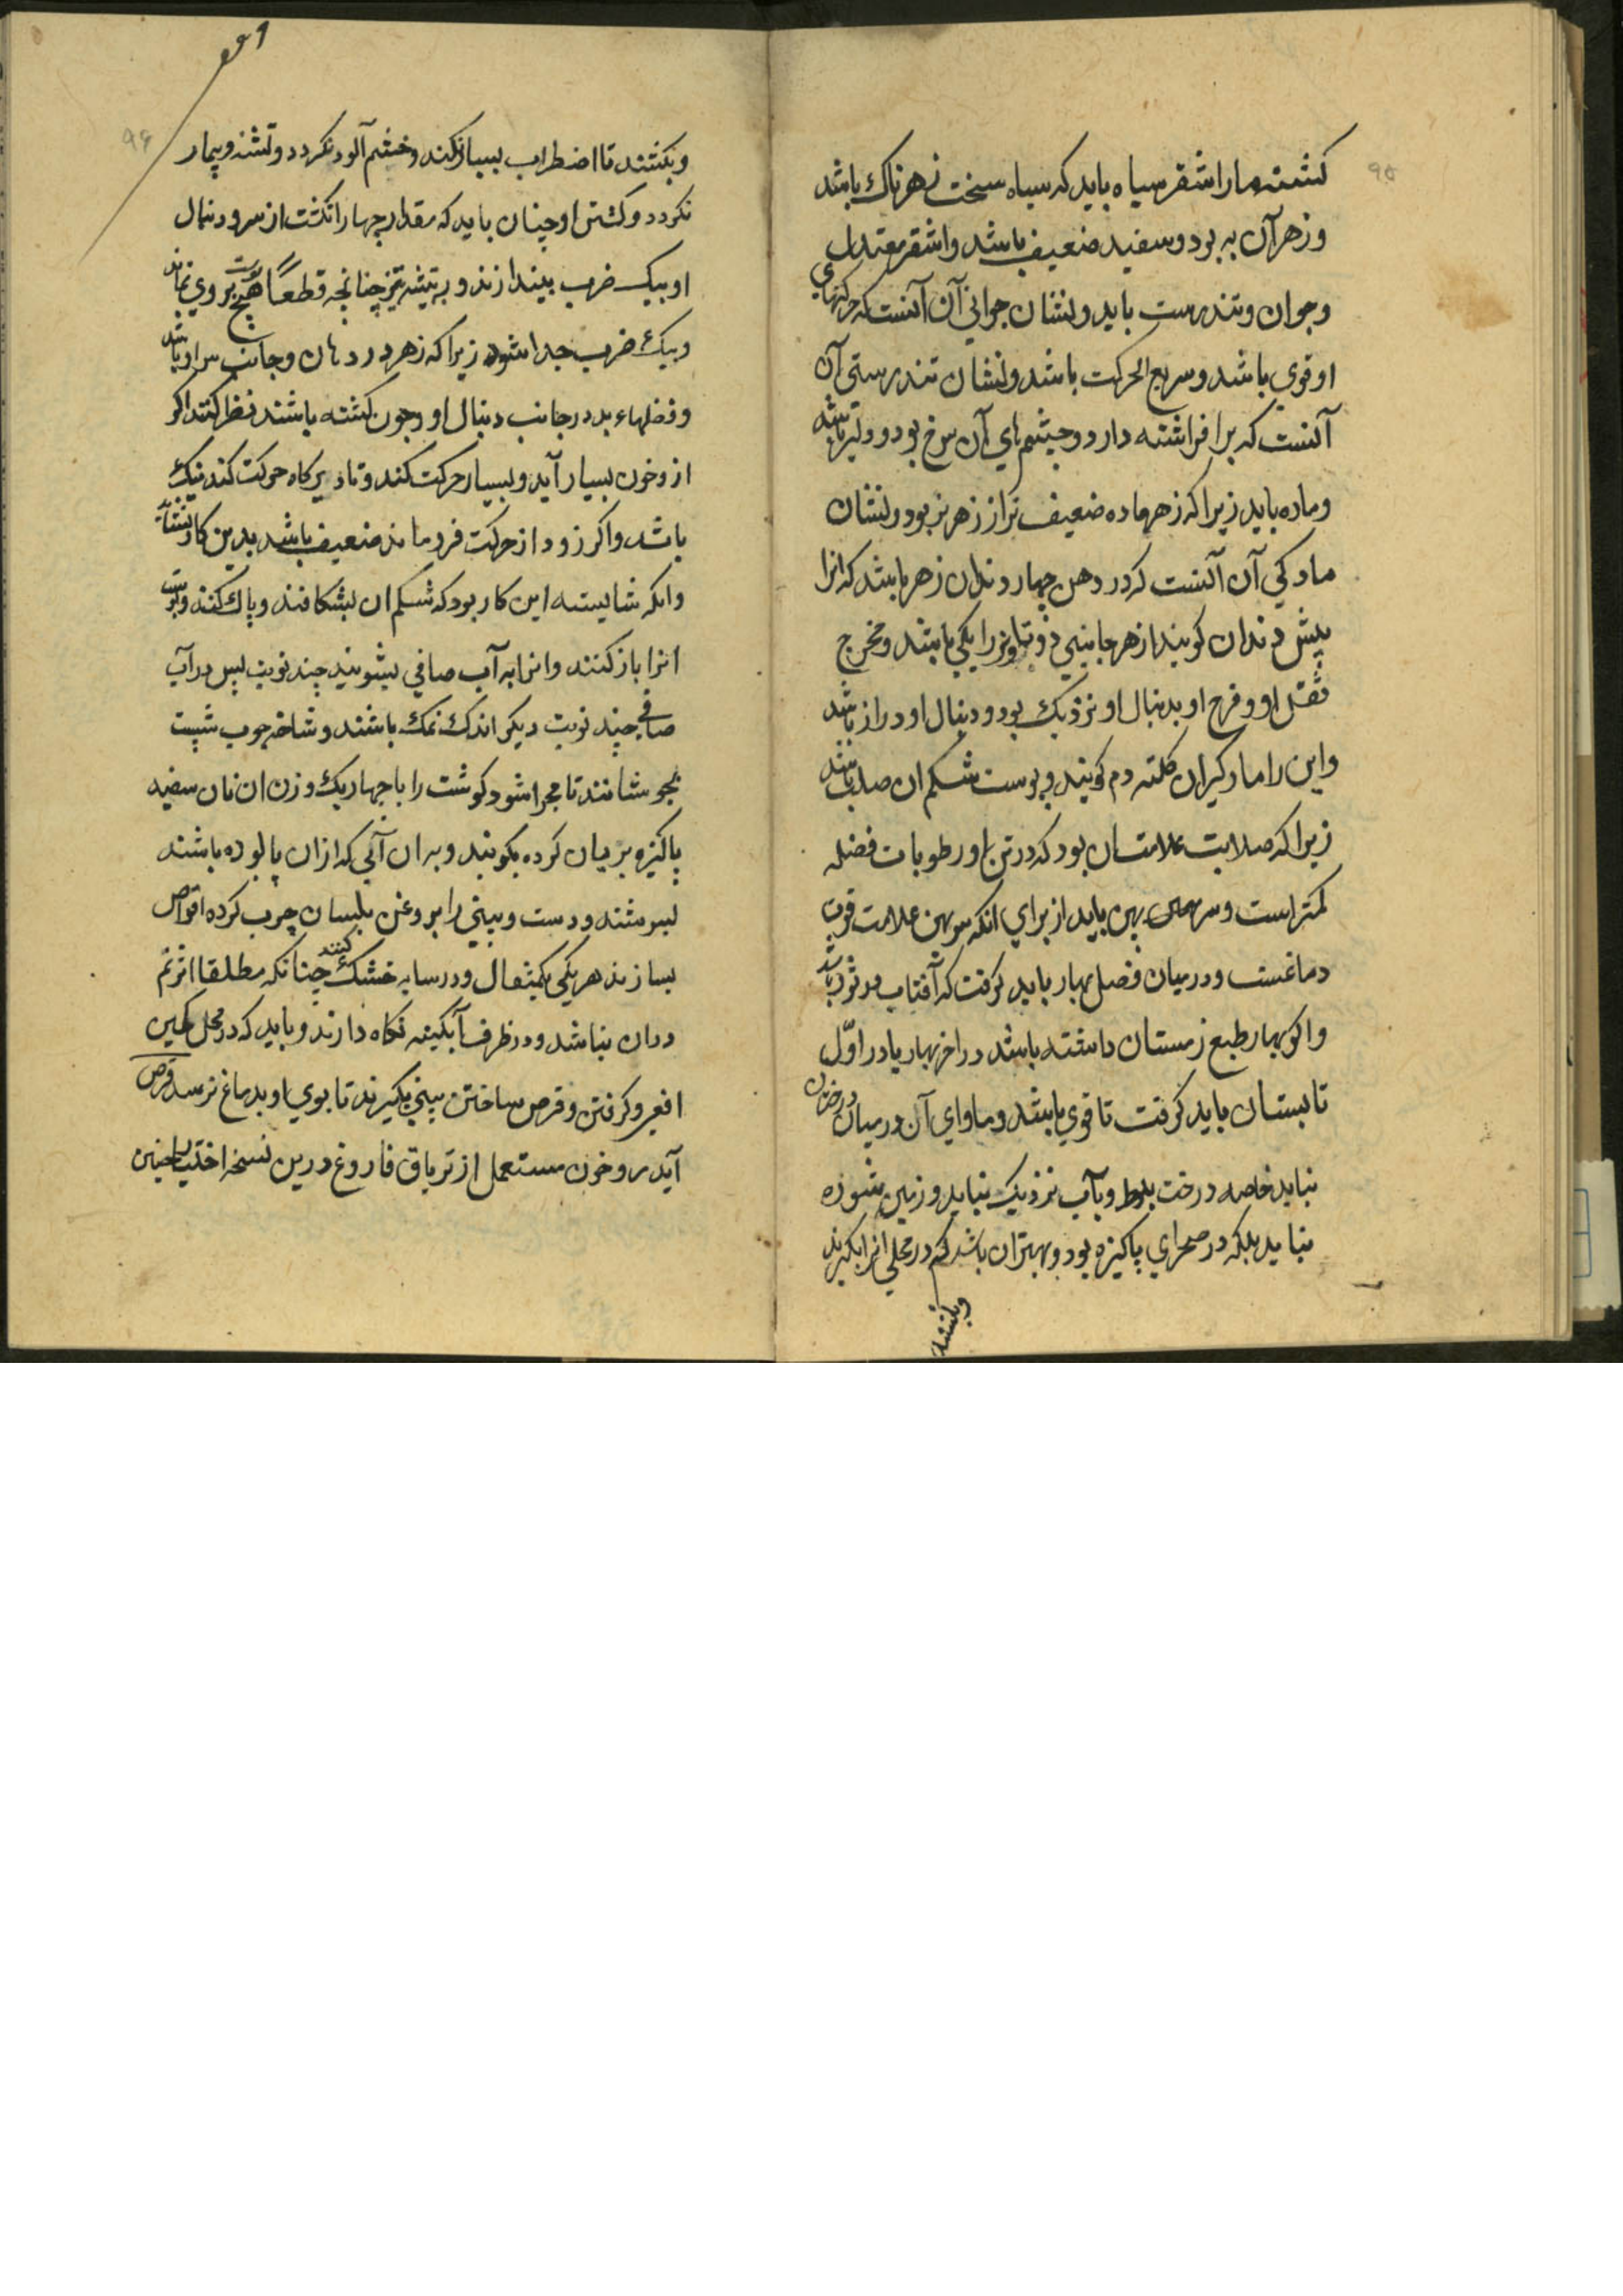 ۹۵
کشتنه مار اشقر سیاه باید که سیاه سخت زهرناک باشد
و زهر آن به بود و سفید ضعیف باشد و اشقر معتدل
و جوان و تندرست باید و نشان جوانی آن آنست که حرکتهای
او قوی باشد و سریع الحرکت باشد و نشان تندرستی آن
آنست که سر افراشته دارد و چشم های آن سرخ بود و دلیر باشد
و ماده باید زیرا که زهر ماده ضعیف تر از زهر نر بود و نشان
مادکی آن آنست که در دهن چهار دندان زهر باشد که انرا
پیش دندان کویند از هر جانبی دو تا و نر را یکی باشد و مخرج
ثقل او و فرج او بدنبال او نزدیک بود و دنبال او دراز باشد
و این را مارکیران کلته دم کویند و پوست شکم ان صلب باشد
زیرا که صلابت علامت ان بود که در تن او رطوبات فضله
کمتر است و سر پهن باید از برای انکه سر پهن علامت قوت
دماغست و در میان فصل بهار باید کرفت که آفتاب در ثور باشد
و اکر بهار طبع زمستان داشته باشد در اخر بهار یا در اوّل
تابستان باید کرفت تا قوی باشد و ماوای آن در میان درختان
نباید خاصه درخت بلوط و بآب نزدیک نباید و زمین شوره
نباید بلکه در صحرای پاکیزه بود و بهتر ان باشد که هم در محلی انرا بکیرند
وبکشند
۹۶
و بکشند تا اضطراب بسیار نکند و خشم آلود نکردد و تشنه و بیمار
نکردد و کشتن او چنان باید که مقدار چهار انکشت از سر و دنبال
او بیک ضرب بیندازند و بر تیشه تیز چنانچه قطعاً هیچ پوست بروی نماند
و بیک ضرب جدا شود زیرا که زهر در دهان و جانب سر او باشد
و فضلهاء بد در جانب دنبال او و چون کشته باشند نظر کنند اکر
از و خون بسیار آید و بسیار حرکت کند و تا دیرکاه حرکت کند نیک
باشد و اکر زود از حرکت فرو ماند ضعیف باشد بدین کار نشاید
وانکه شایسته این کار بود که شکم ان بشکافند و پاک کنند و پوست
انرا باز کنند و انرا به آب صافی بشویند چند نوبت پس در آب
صافی چند نوبت دیکر اندک نمک باشند و شاخه چوب شبت
بجوشانند تا مهرا شود کوشت را با چهار یک وزن ان نان سفید
پاکیزه بریان کرده بکوبند و به ان آبی که ازان پالوده باشند
بسرشند و دست و بینی را بروغن بلسان چرب کرده اقراص
بسازند هر یکی یکمثقال و در سایه خشک کنند چنانکه مطلقا اثر نم
دران نباشد و در ظرف آبکینه نکاه دارند و باید که در محل کهین
افعی و کرفتن و قرص ساختن بینی بکیرند تا بوی او بدماغ نرسد قرص
آید روخون مستعمل از تریاق فاروغ درین نسخه اختیار چنین